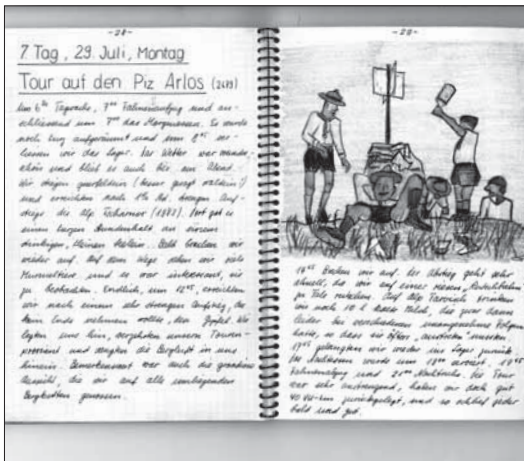 - 28 -
7 Tag, 29. Juli, Montag
Tour auf den Piz Arlos
Um 6 Tagwache, 7 Fahnenaufzug und an-
schliessend um 7 das Morgenessen. Es wurde
noch kurz aufgeräumt und um 8 45 ver-
liessen wir das Lager. Das Wetter war wunder-
schön und blieb es auch bis am Abend.
Wir stiegen
und erreichten nach Std. strengen Auf-
stiegs die Alp
einen kurzen Stundenhalt an einem
kleinen Bald brachen wir
wieder auf. Auf dem Wege sahen wir viele
Murmeltiere und es war interessant, sie
zu beobachten. Endlich, um 12 45, erreichten
wir nach einem sehr strengen Aufstieg, der
kein Ende nehmen wollte, den Gipfel. Wir
legten uns hin, verzehrten unseren Touren-
proviant und sogen die Bergluft in uns
hinein. Bemerkenswert war auch die grandiose
Aussicht, die wir auf alle umliegenden
Bergketten genossen.
- 29 -
14 45 brachen wir auf. Der Abstieg geht sehr
schnell, da wir auf einer riesen
zu Tale rutschen. Auf Alp trinken
wir noch 10 l Milch, das zwar dann
leider bei verschiedenen unangenehme Folgen
hatte, so dass sie öfters "austreten" mussten.
17 45 gelangten wir wieder ins Lager zurück.
Das Nachtessen wurde um 18 serviert, 19 45
Fahnenabzug und 21 Nachtruhe. Die Tour
war sehr anstrengend, haben wir doch gut
40 km zurückgelegt, und so schlief jeder
bald und gut.